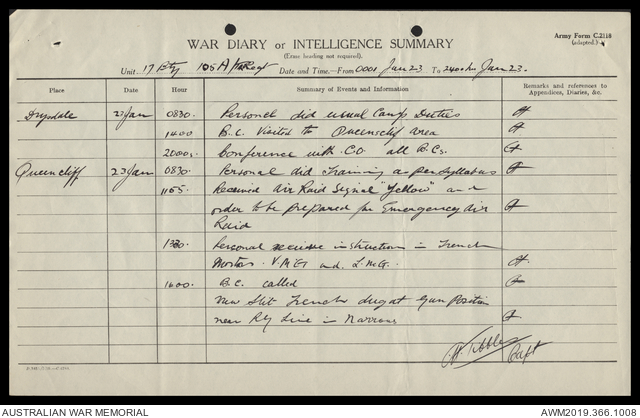 Army Form C.2118
(adapted.)
WAR DIARY or INTELLIGENCE SUMMARY
(Erase heading not required).
Unit 17 Bty 105 A/Tk Regt Date and Time—From 0001 Jan 23 To 2400 hrs Jan 23.
Place Date Hour Summary of Events and Information Remarks and references to Appendices, Diaries, &c.
Drysdale 23 Jan 0830. Personel did usual Camp Duties
1400 B.C. Visited to Queenscliff area
2000 Conference with C.O. all B.Cs.
Queencliff 23 Jan 0830. Personal did training as per Syllabus
1155 Received Air Raid Signal "Yellow" and
order to be prepared for Emergency Air
Raid
1330 Personal receive instruction in Trench
Mortars. V.M.G and L.M.G.
1600 B.C. called
New Slit Trench dug at Gun Position
near Rly Line in Narrows
Capt
AUSTRALIAN WAR MEMORIAL
AWM2019.366.1008